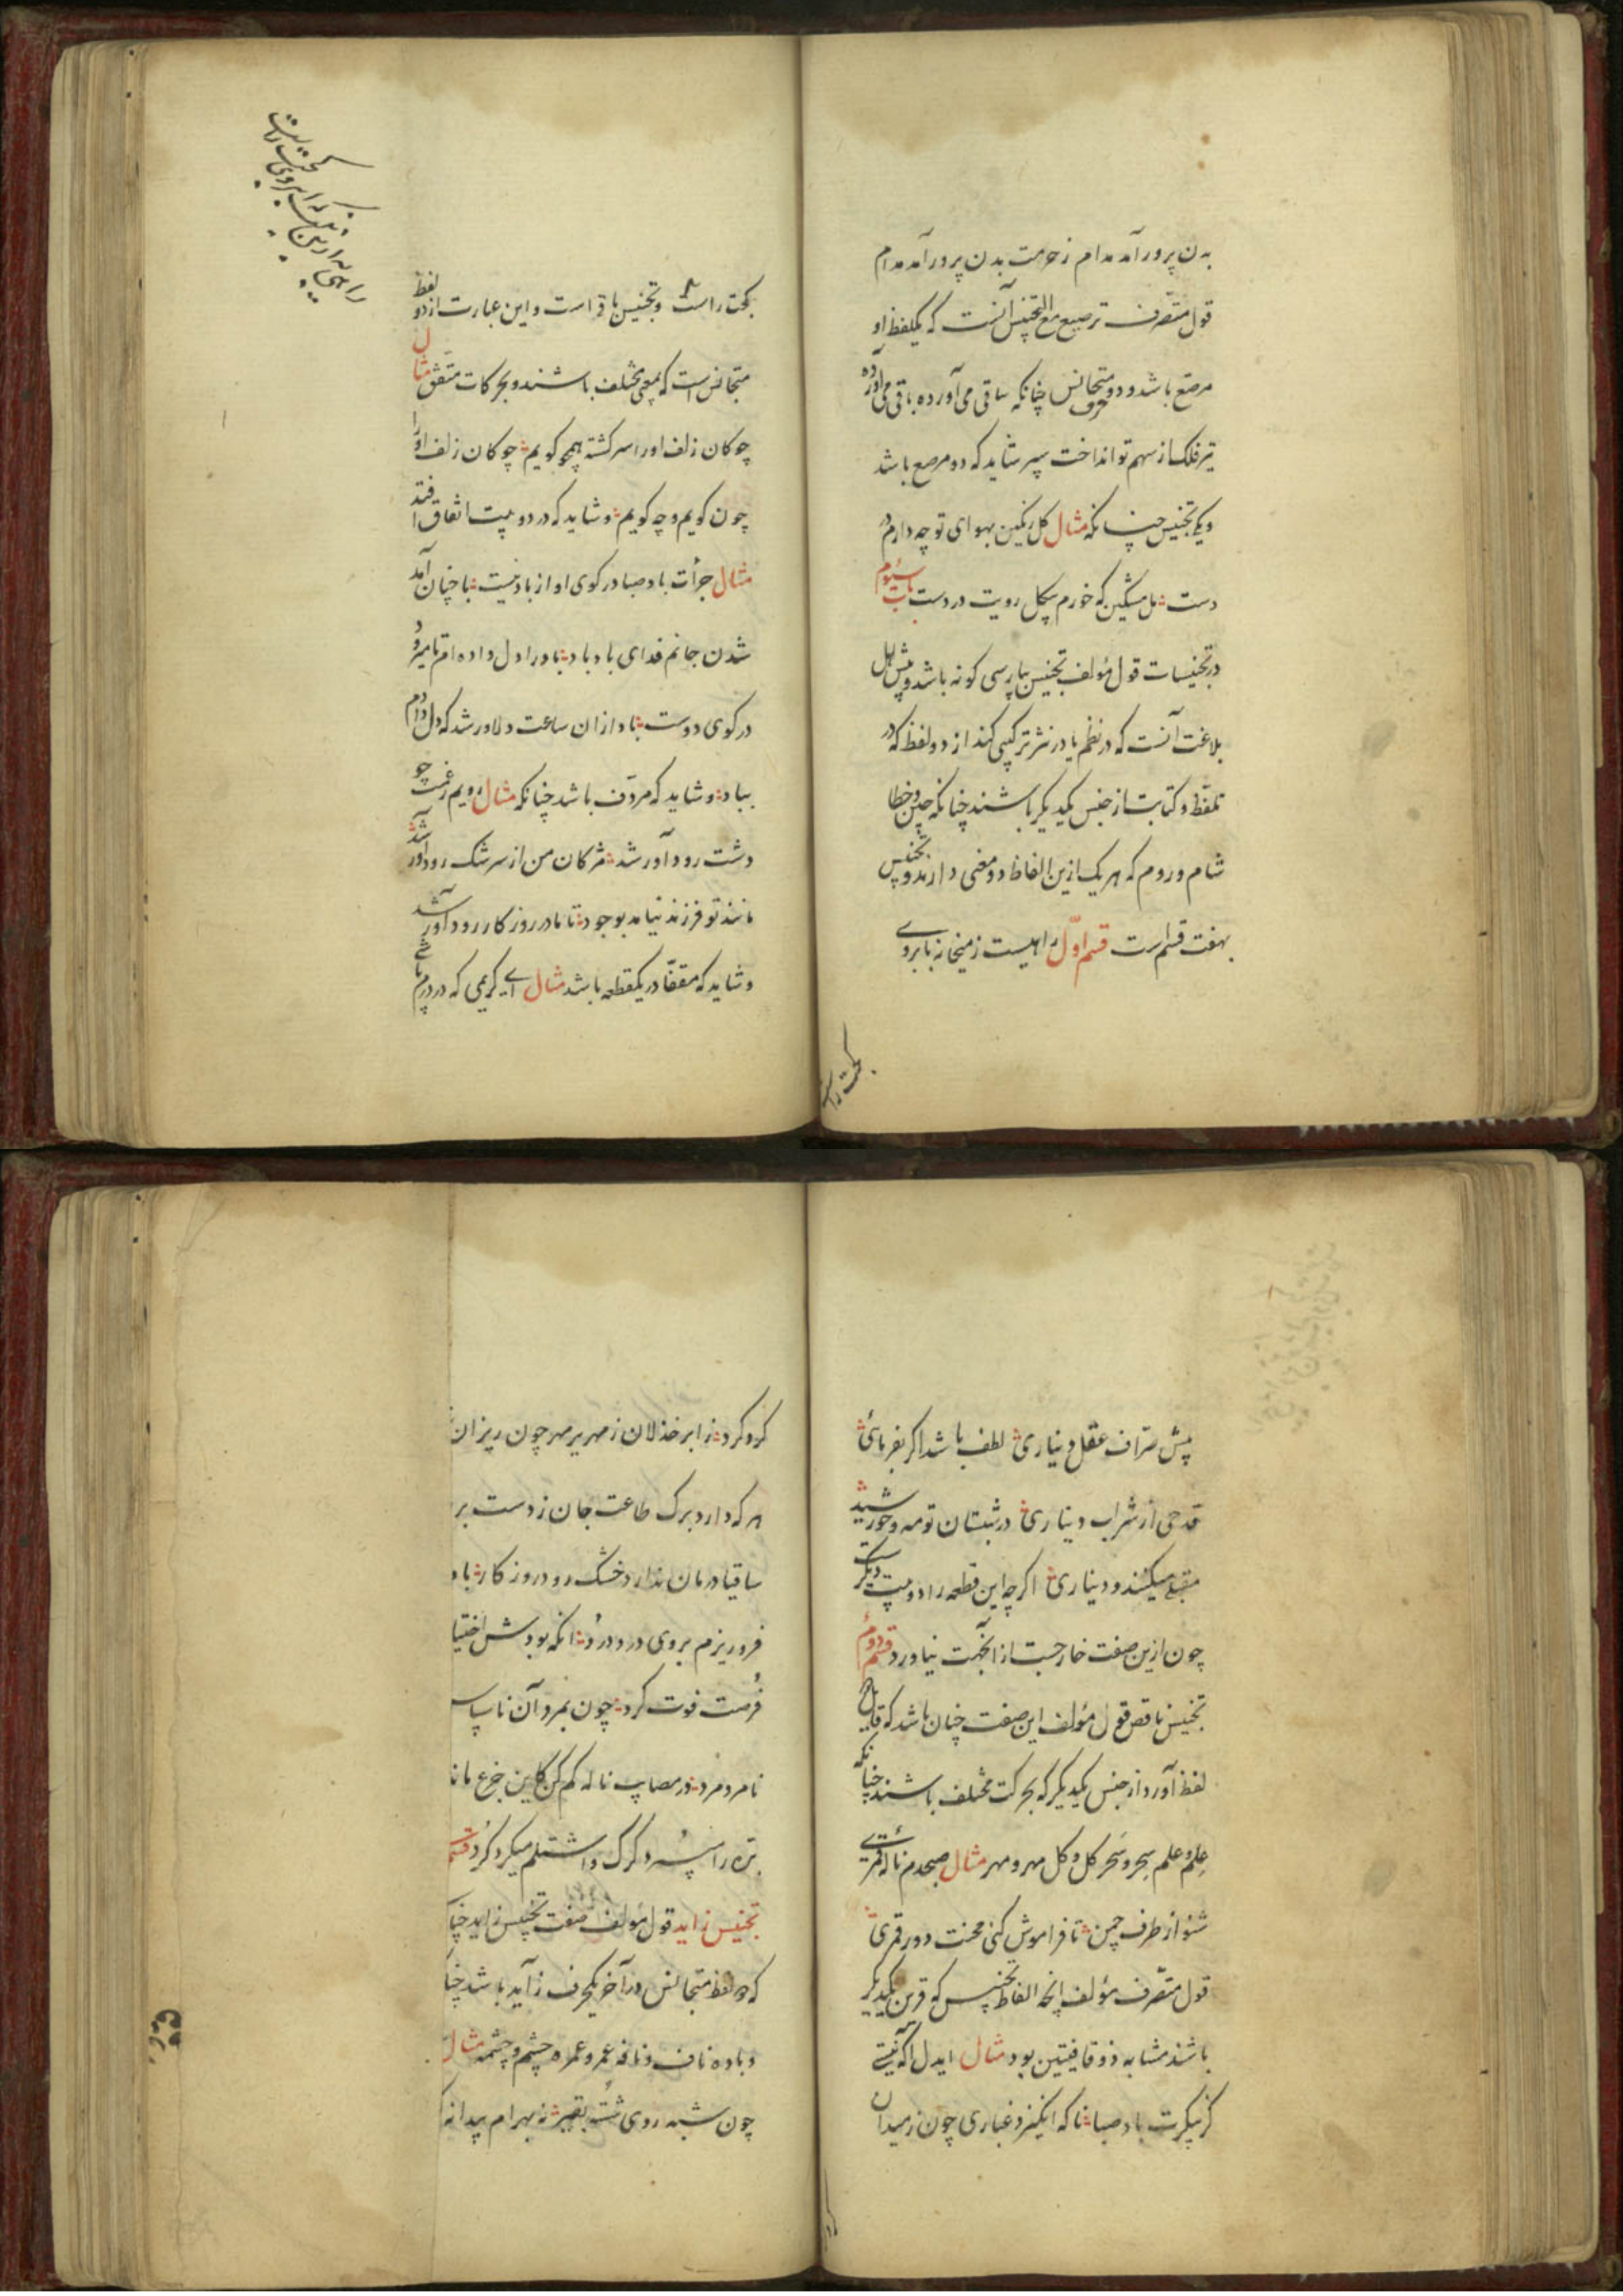 بدن پرور آمد مدام ز حرمت بدن پرور آمد مدام
قول متصرف ترصیع مع التجنیس آنست که یکلفظ او
مرصع باشد و دو متجانس چنانکه ساقی می آورده باقی می آورده
حرف
تیر فلک از سهم تو انداخت سپر شاید که دو مرصع باشد
و یکی تجنیس چنانکه مثال کل رنگین بهوای تو چه دارم در
دست مل مشکین که خورم بیکل رویت در دست باب سیوم
در تجنیسات قول مؤلف تجنیس بپارسی کونه باشد و پیش اهل
بلاغت آنست که در نظم یا در نثر ترکیبی کند از دو لفظ که در
تلفظ و کتابت از جنس یکدیگر باشند چنانکه چین و خطا
شام و روم که هر یک ازین الفاظ دو معنی دارند و تجنیس
بهفت قسم است قسم اول راهیست ز میخانه بابروی
بحت راست
بحت راست و تجنیس باقی است و این عبارت از دو لفظ
متجانس است که بمعنی مختلف باشند و بحرکات متفق مثال
چوکان زلف او را سرکشته همچو کویم چوکان زلف او را
چون کویم و چه کویم و شاید که در دو بیت اتفاق افتد
مثال جرأت باد صبا در کوی او از باد نیست با چنان آمد
شدن جانم فدای باد باد باد را دل داده ام تا میرود
در کوی دوست باد ازان ساعت دلاور شد که دل دادم
بباد و شاید که مردف باشد چنانکه مثال رویم ز غمت چو
دشت رود آور شد مژکان من از سرشک رود آور شد
مانند تو فرزند نیامد بوجود تا مادر روزکار رود آور شد
و شاید که مقفا در یکقطعه باشد مثال ای کریمی که در درم پاشی
پیش صراف عقل دیناری لطف باشد اکر بفرمائی
قدحی از شراب دیناری در شبستان تو مه و خورشید
مقبلی میکنند و دیناری اکرچه این قطعه را دو بیت دیکر
چون ازین صفت خارجست از آنجهت نیاورد قسم دوم
تجنیس ناقص قول مؤلف این صفت چنان باشد که قایل
لفظ آورد از جنس یکدیگر که بحرکت مختلف باشند چنانکه
علم و علم سحر و سحر کل و کل مهر و مهر مثال صبحدم ناله قمری
شنو از طرف چمن تا فراموش کنی محنت دور قمری
قول متصرف مؤلف انچه الفاظ تجنیس که قرین یکدیگر
باشند مشابه ذو قافیتین بود مثال ایدل اکه نیستی
کز پیکرت باد صبا ناکه انکیزد غباری چون ز میدان
کرد کرد ز ابر خذلان زمهریر مهر چون ریزان
هر که دارد برک طاعت جان ز دست بر
ساقیا درمان ندارد خشک رود روزکار باد
فرو ریزم بروی درد درد انکه بودش اختیا
فرصت فوت کرد چون بمرد آن ناسپاس
نامرد مرد در مصایب ناله کم کن کاین جزع مانا
بره را سپرد کرک و اشتلم میکرد کرد قسم
تجنیس زاید قول مؤلف صفت تجنیس زاید چنا
که دو لفظ متجانس در آخر یکحرف زاید باشد چنا
و باده ناف و نافه عمر و عمره چشم و چشمه مثال
چون شبه روی شسته بقیر نه بهرام پیدا نه